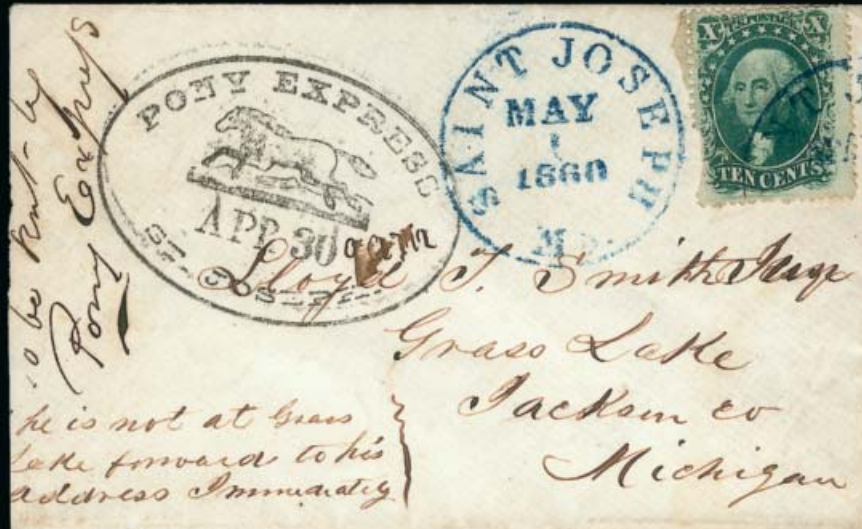 to be sent by
Pony Express
PONY EXPRESS
APR 30
ST. JOSEPH
SAINT JOSEPH
MAY
1
1860
Mo.
X X
TEN CENTS
Lloyd T. Smith
Grass Lake
Jackson co
Michigan
he is not at Grass
Lake forward to his
address Immediately